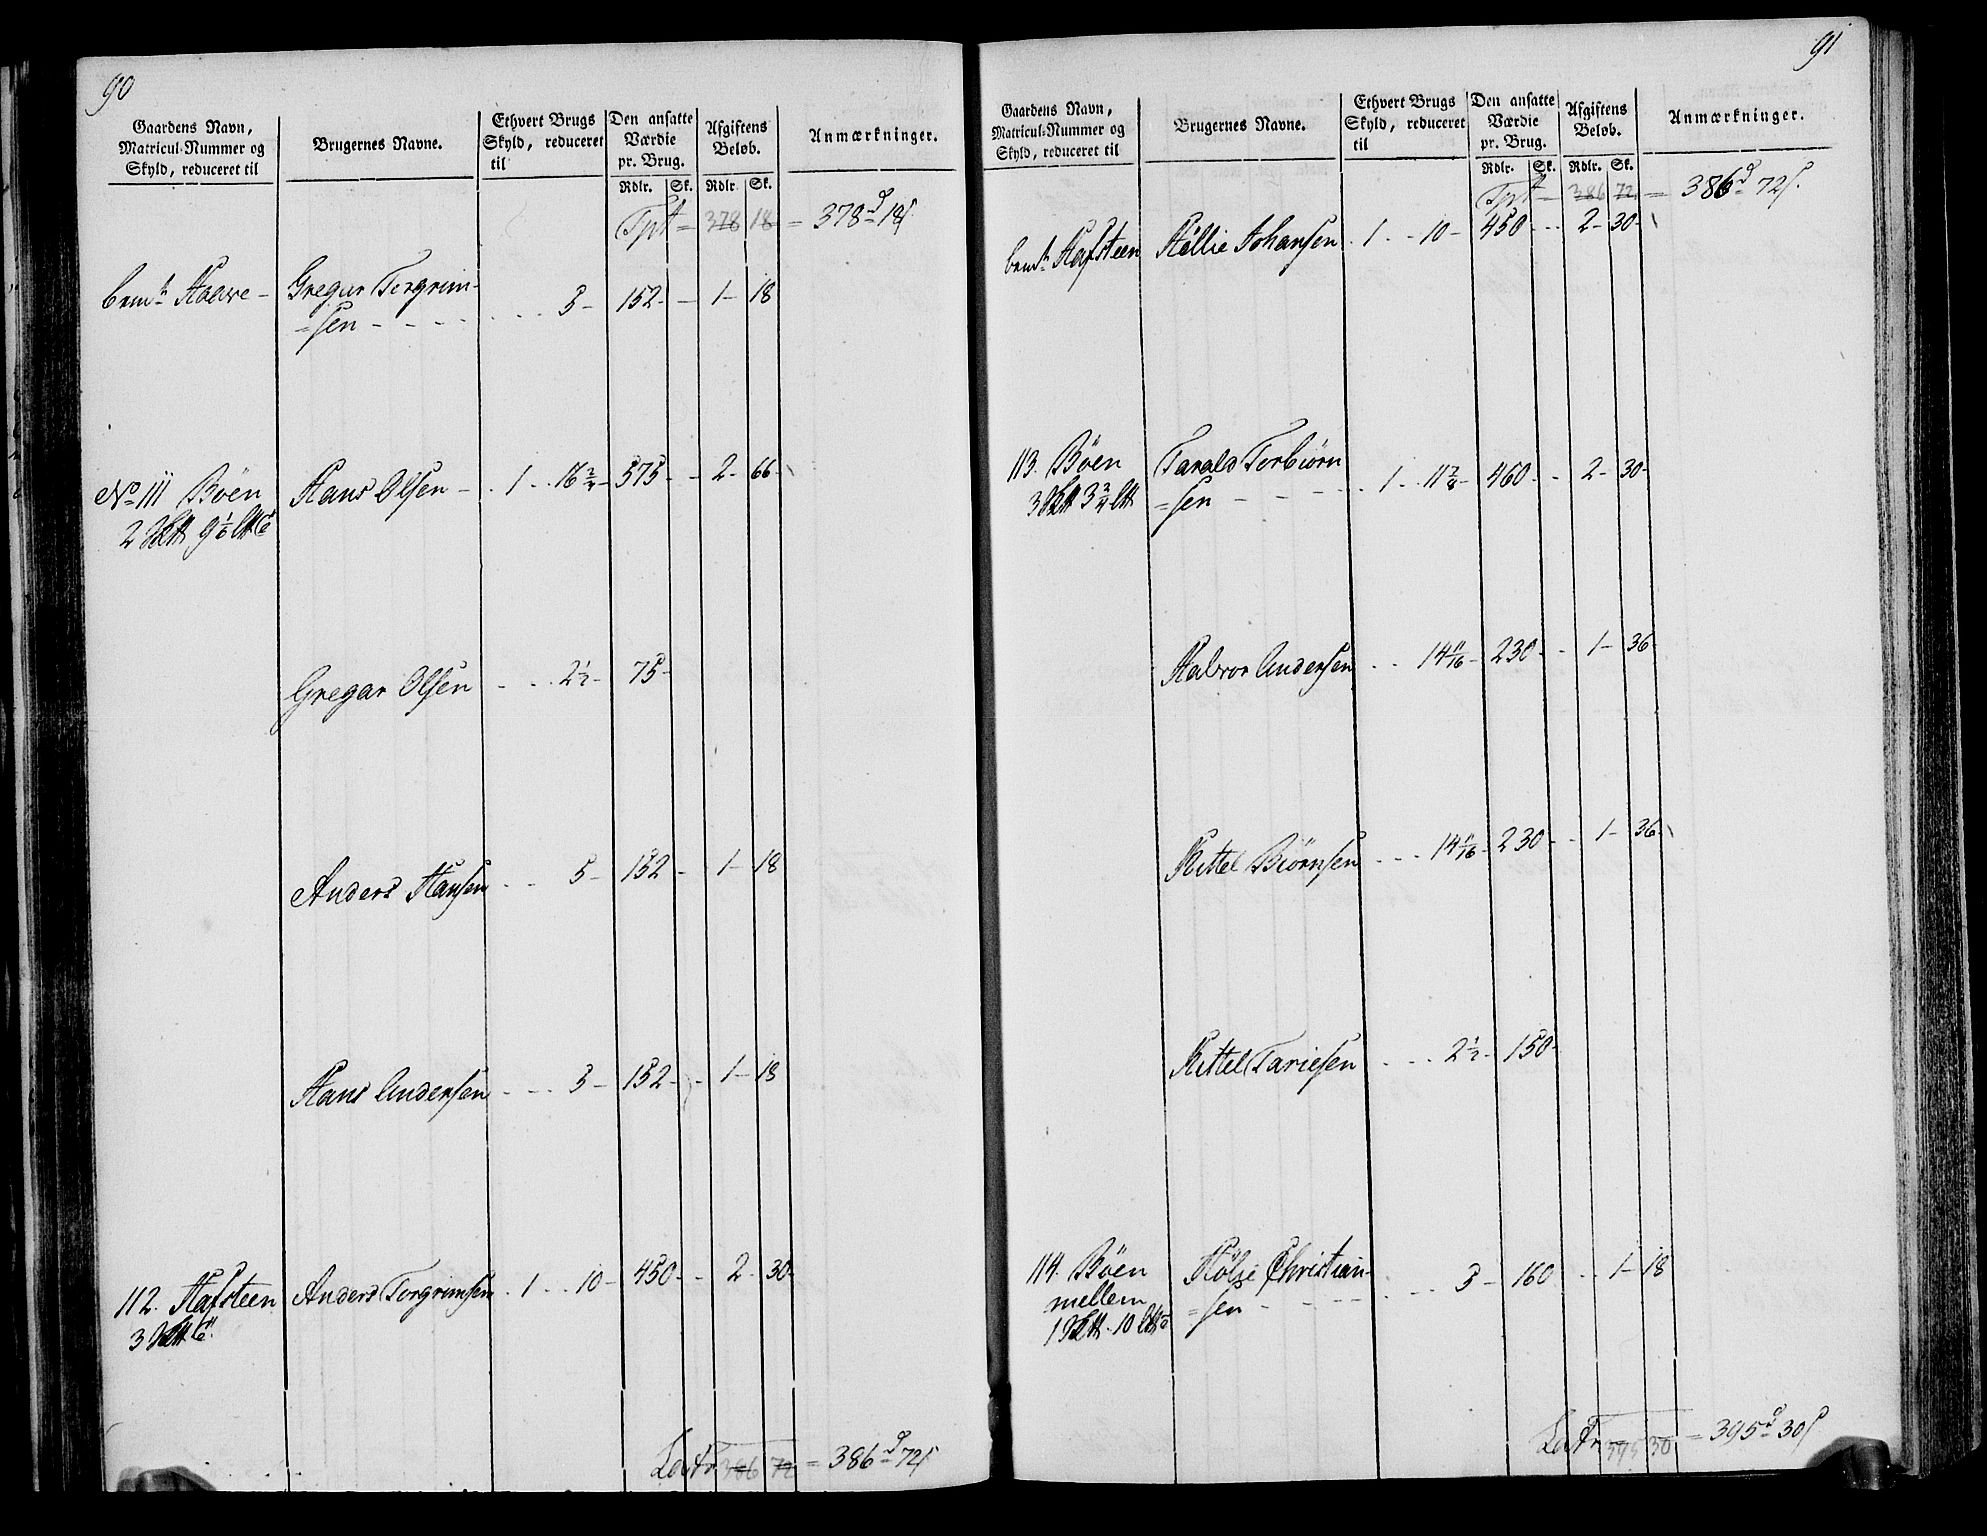 90
Gaardens Navn,
Matricul-Nummer og
Skyld, reduceret til
Brugernes Navne.
Ethvert Brugs
Skyld, reduceret
til
Den ansatte
Værdie
pr. Brug.
Afgiftens
Beløb.
Anmærkninger.
Rdlr. Sk. Rdlr. Sk.
Tpt = 378 18 = 378 d 18 s
bemte Haave - Gregar Torgrim-
=sen - - - - - - - 3 - 152 - - 1 - 18
No 111 Böen Hans Olsen - . 1 . . 16 3/4 - 575 - - 2 - 66 -
2
Gregar Olsen - . . . 2 1/2 - 75 -
Anders Hansen - - - 3 - 152 - - 1 - 18
Hans Andersen - - - 3 - 152 - - 1 - 18
112. Hafsteen Anders Torgrimsen . 1 . . 10 - 450 - - 2 - 30 -
3
Latr 386 72 = 386 d 72 s
91
Gaardens Navn,
Matricul-Nummer og
Skyld, reduceret til
Brugernes Navne.
Ethvert Brugs
Skyld, reduceret
til
Den ansatte
Værdie
pr. Brug.
Afgiftens
Beløb.
Anmærkninger.
Rdlr. Sk. Rdlr. Sk.
Tpt = 386 72 = 386 d 72 s.
bemte Hafsteen Johansen . 1 . . 10 - 450 - - 2 - 30 -
113. Böen Tarald Torbiörn
=sen - - - - . 1 . . 11 7/8 - 460 - - 2 - 30 -
3
Halvor Andersen . . 14 1/16 - 230 - - 1 - 36 -
Kittel Biörnsen - - - 14 1/16 - 230 - - 1 - 36 -
Kittel Tariesen . - - 2 1/2 - 150 -
114. Böen Christian-
mellem =sen - - - - - - - 3 - 160 - - 1 - 18
Latr 395 30 = 395 d 30 s